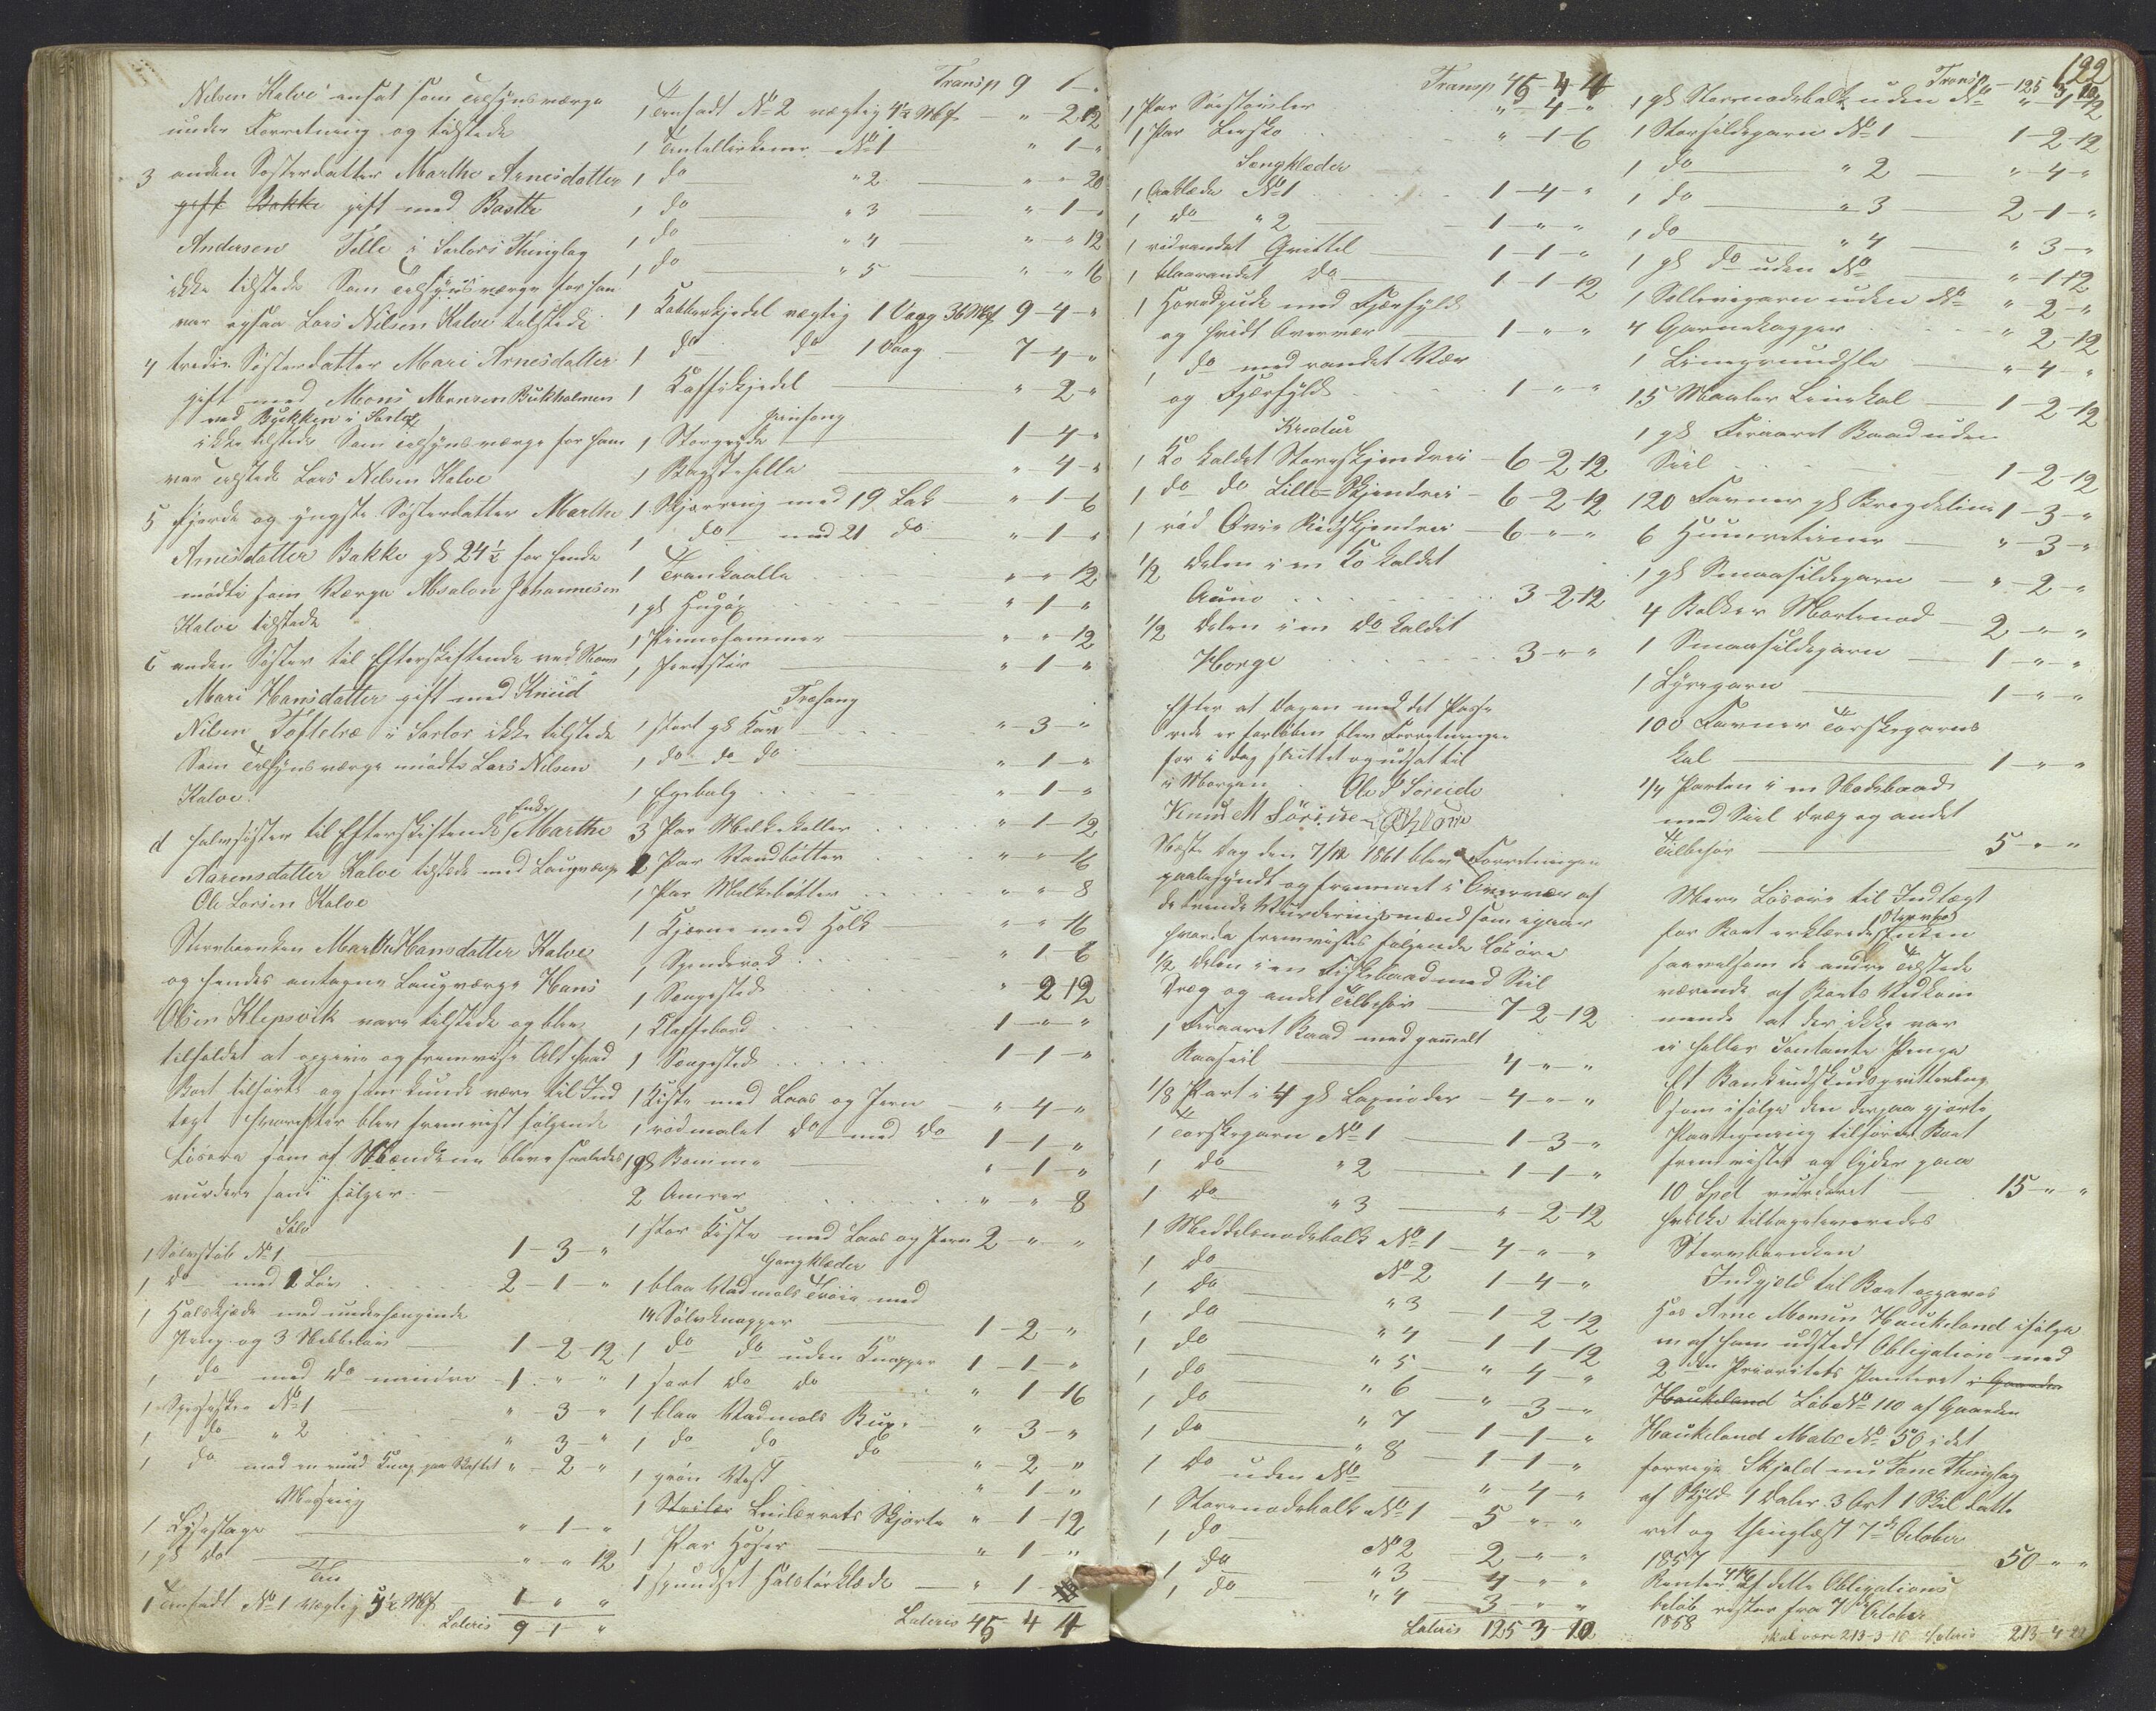 Nilsen Kalve ansat som Tilsynsværge
under Forretning og tilstede
3 anden Søsterdatter Marthe Arnesdatter
gift Bakke gift med Baste
Andersen Telle i Sartors Thinglag
ikke tilstede Som Tilsynsværge for ham
var ogsaa Lars Nilsen Kalve tilstede
4 tredie Søsterdatter Mari Arnesdatter
gift med Mons Monsen Bukholmen
ved Bukken i Sartor
ikke tilstede Som Tilsynsværge for ham
var tilstede Lars Nilsen Kalve
5 fjerde og yngste Søsterdatter Marthe
Arnesdatter Bakke gl 24½ for hende
mødte som Værge Absalon Johannesen
Kalve tilstede
6 anden Søster til Efterskiftende ved Navn
Mari Hansdatter gift med Knud
Nilsen Toftelræ i Sartor ikke tilstede
Som Tilsynsværge mødte Lars Nilsen
Kalve.
d halvsøster til Efterskiftende Enke Marthe
Aarensdatter Kalve tilstede med Laugværge
Ole Larsen Kalve
Stervboenken Marthe Hansdatter Kalve
og hendes antagne Laugværge Hans
Olsen Klepsvik vare tilstede og blev
tilholdet at opgive og fremvise Alt hvad
Boet tilhørte og som kunde være til Ind
tægt hvorefter blev fremvist følgende
Løsøre som af Mændene bleve saaledes
vurdere som følger.
Sølv
1 Sølvstøb No 1 1-3-"
1 do med 2 Løv 2-1-"
1 Halskjæde med underhængende
Peng og 3 Malieløv 1-2-12
1 do med do mindre 1-"-"
1 Spiseskee No 1 "-3-"
1 do " 2 "-3-"
1 do med en rund Knap paa Skaftet "-2-"
Messing
1 Lysestage "-1-"
1 gl do "-"-12
Tin
1 Tinfadt No 1 vægtig 5½ Mk 1 " "
Lateris 9-1-"
Transp 9 1-"
1 Tinfadt No 2 vægtig 4½ Mk "-2-12
1 Tintallerkener No 1 " 1-"
1 do " 2 "-"-20
1 do " 3 "-1-"
1 do " 4 "-"-12
1 do " 5 "-"-16
1 Kobberkjedel vægtig 1 Vaag 36 Mk 9-4-"
1 do do 1 Vaag 7-4-"
1 Kaffekjedel "-2-"
Jernfang
1 Storgryde 1-4-"
1 Bagstehelle "-4-"
1 Skjærring med 19 Lak "-1-6
1 do med 21 do "-1-"
1 Trankaalle "-"-12
1 gl Hugøx "-1-"
1 Pinnehammer "-"-12
1 Jernstør "-1-"
Træfang
1 stort gl Kar "-3-"
1 do do do "-1-"
1 Egebalg "-1-"
3 Par Melkekoller "-1-12
2 Par Vandbøtter "-"-16
1 Par Melkebøtter "-"-8
1 Kjærne med Holk "-"-16
1 Spinderok "-1-8
1 Sengested "-2-12
1 Klaffebord 1-"-"
1 Sengested 1-1-"
1 Kiste med Laas og Jern "-4-"
1 rødmalet do med do 1-1-"
1 gl Bomme "-1-"
2 Amrer "-"-8
1 stor Kiste med Laas og Jern 2-"-"
Gangklæder
1 blaa Vadmels Trøie med
14 Sølvknapper 1-2-"
1 do do uden Knapper 1-1-"
1 sort do do "-1-16
1 blaa Vadmels Buxe "-3-"
1 do do do "-2-"
1 grøn Vest "-1-"
1 Strikor Lerlærrets Skjorte "-1-12
1 Par Hoser "-1-"
1 spundset Halstørklæde "-1-
Lateris 45-4-4
Transp 45-4-4
1 Par Søestøvler "-4-"
1 Par Læsko "-1-6
Sengklæder
1 Aaklæde No 1 1-4-"
1 do " 2 1-"-"
1 hvidrandet Grittel 1-1-"
1 blaarandet do 1-1-12
1 Hovedpude med Fjærfyld
og hvidt Overvær 1-"-"
1 do med randet Vær
og Fjærfyld 1-"-"
Kreatur
1 Ko kaldet Storeskjendrei 6-2-12
1 do do Lille Skjendrei 6-2-12
1 rød Qvie Rødskjendrei 6-"-"
1/2 Delen i en Ko kaldet
Auno 3-2-12
1/2 Delen i en do kaldet
Horge 3-"-"
Efter at Dagen med det Passe
rede er forløben blev Forretningen
for i dag sluttet og udsat til
i Morgen Ole P Søreide
Knud M Sørside
Næste Dag den 7/12 1861 blev Forretningen
paabegyndt og fremmet i Overvær af
de tvende Vurderingsmænd som igaar
hvorda fremvistes følgende Løsøre
1/2 Delen i en Fiskebaad med Siil
Dræg og andet Tilbehør 7-2-12
1 Feraaret Baad med gammelt
Raaseil 4-"-"
1/8 Part i 4 gl Laxnøder 4-"-"
1 Torskegarn No 1 1-3-"
1 do " 2 1-1-"
1 do " 3 "-2-12
1 Meddelsnodebolk No 1 4-"-"
1 do No 2 1-4-"
1 do " 3 1-2-12
1 do " 4 1-1-12
1 do " 5 "-4-"
1 do " 6 "-3-"
1 do " 7 1-1-"
1 do " 8 1-1-"
1 do uden No "-4-"
1 Storenodebolk No 1 5-"-"
1 do No 2 2-"-"
1 do " 3 4-"-"
1 do " 4 3-"-"
Lateris 125-3-10
122
Transp 125 3 10
1 gl Storenodebolk uden No "-4-12
1 Storsildegarn No 1 1-2-12
1 do " 2 "-4-"
1 do " 3 2-1-"
1 do " 4 "-3-"
1 gl do uden No "-1-12
1 Sollevigarn uden No "-2-"
4 Garnekagger "-2-12
1 Linegrundsle "-4-"
15 Maaler Linekal 1-2-12
1 gl Feraaret Baad uden
Siil 1-2-12
120 Favner gl Bregdeline 1-3-"
6 Hummertiener "-3-"
1 gl Smaasildegarn "-2-"
4 Bolker Mortenod 2-"-"
1 Smaasildegarn 1-"-"
1 Lyregarn 1-"-"
100 Favner Torskegarns
kal 1-"-"
1/4 Parten i en Nodebaad
med Siil Dræg og andet
Tilbehør 5-"-"
Mere Løsøre til Indtægt
for Boet erklærede Stervboenken
saavelsom de andre Tilstede
værende af Boets Vedkom
mende at der ikke var
ei heller Contante Penge
Et Bankindskudsqvittering
som ifølge den derpaa gjorte
Paategning tilhører Boet
fremvistes og lyder paa
10 Spd vurderet 15-"-"
hvilke tilbageleveredes
Stervboenken
Indgjeld til Boet opgaves
Hos Arne Monsen Haukeland ifølge
en af ham udstedt Obligation med
2den Prioritets Panteret i Gaarden
Haukeland Løb No 110 af Gaarden
Haukeland Matr No 50 i det
forrige Skjold nu Fane Thinglag
af Skyld 1 Daler 3 Ort 1 Skil datte
ret og thinglæst 7de October
1857 50-"-"
Renter 4 % af dette Obligations
beløb rester fra 7de October
1858
skal være 213-3-10 Lateris 213-4-22